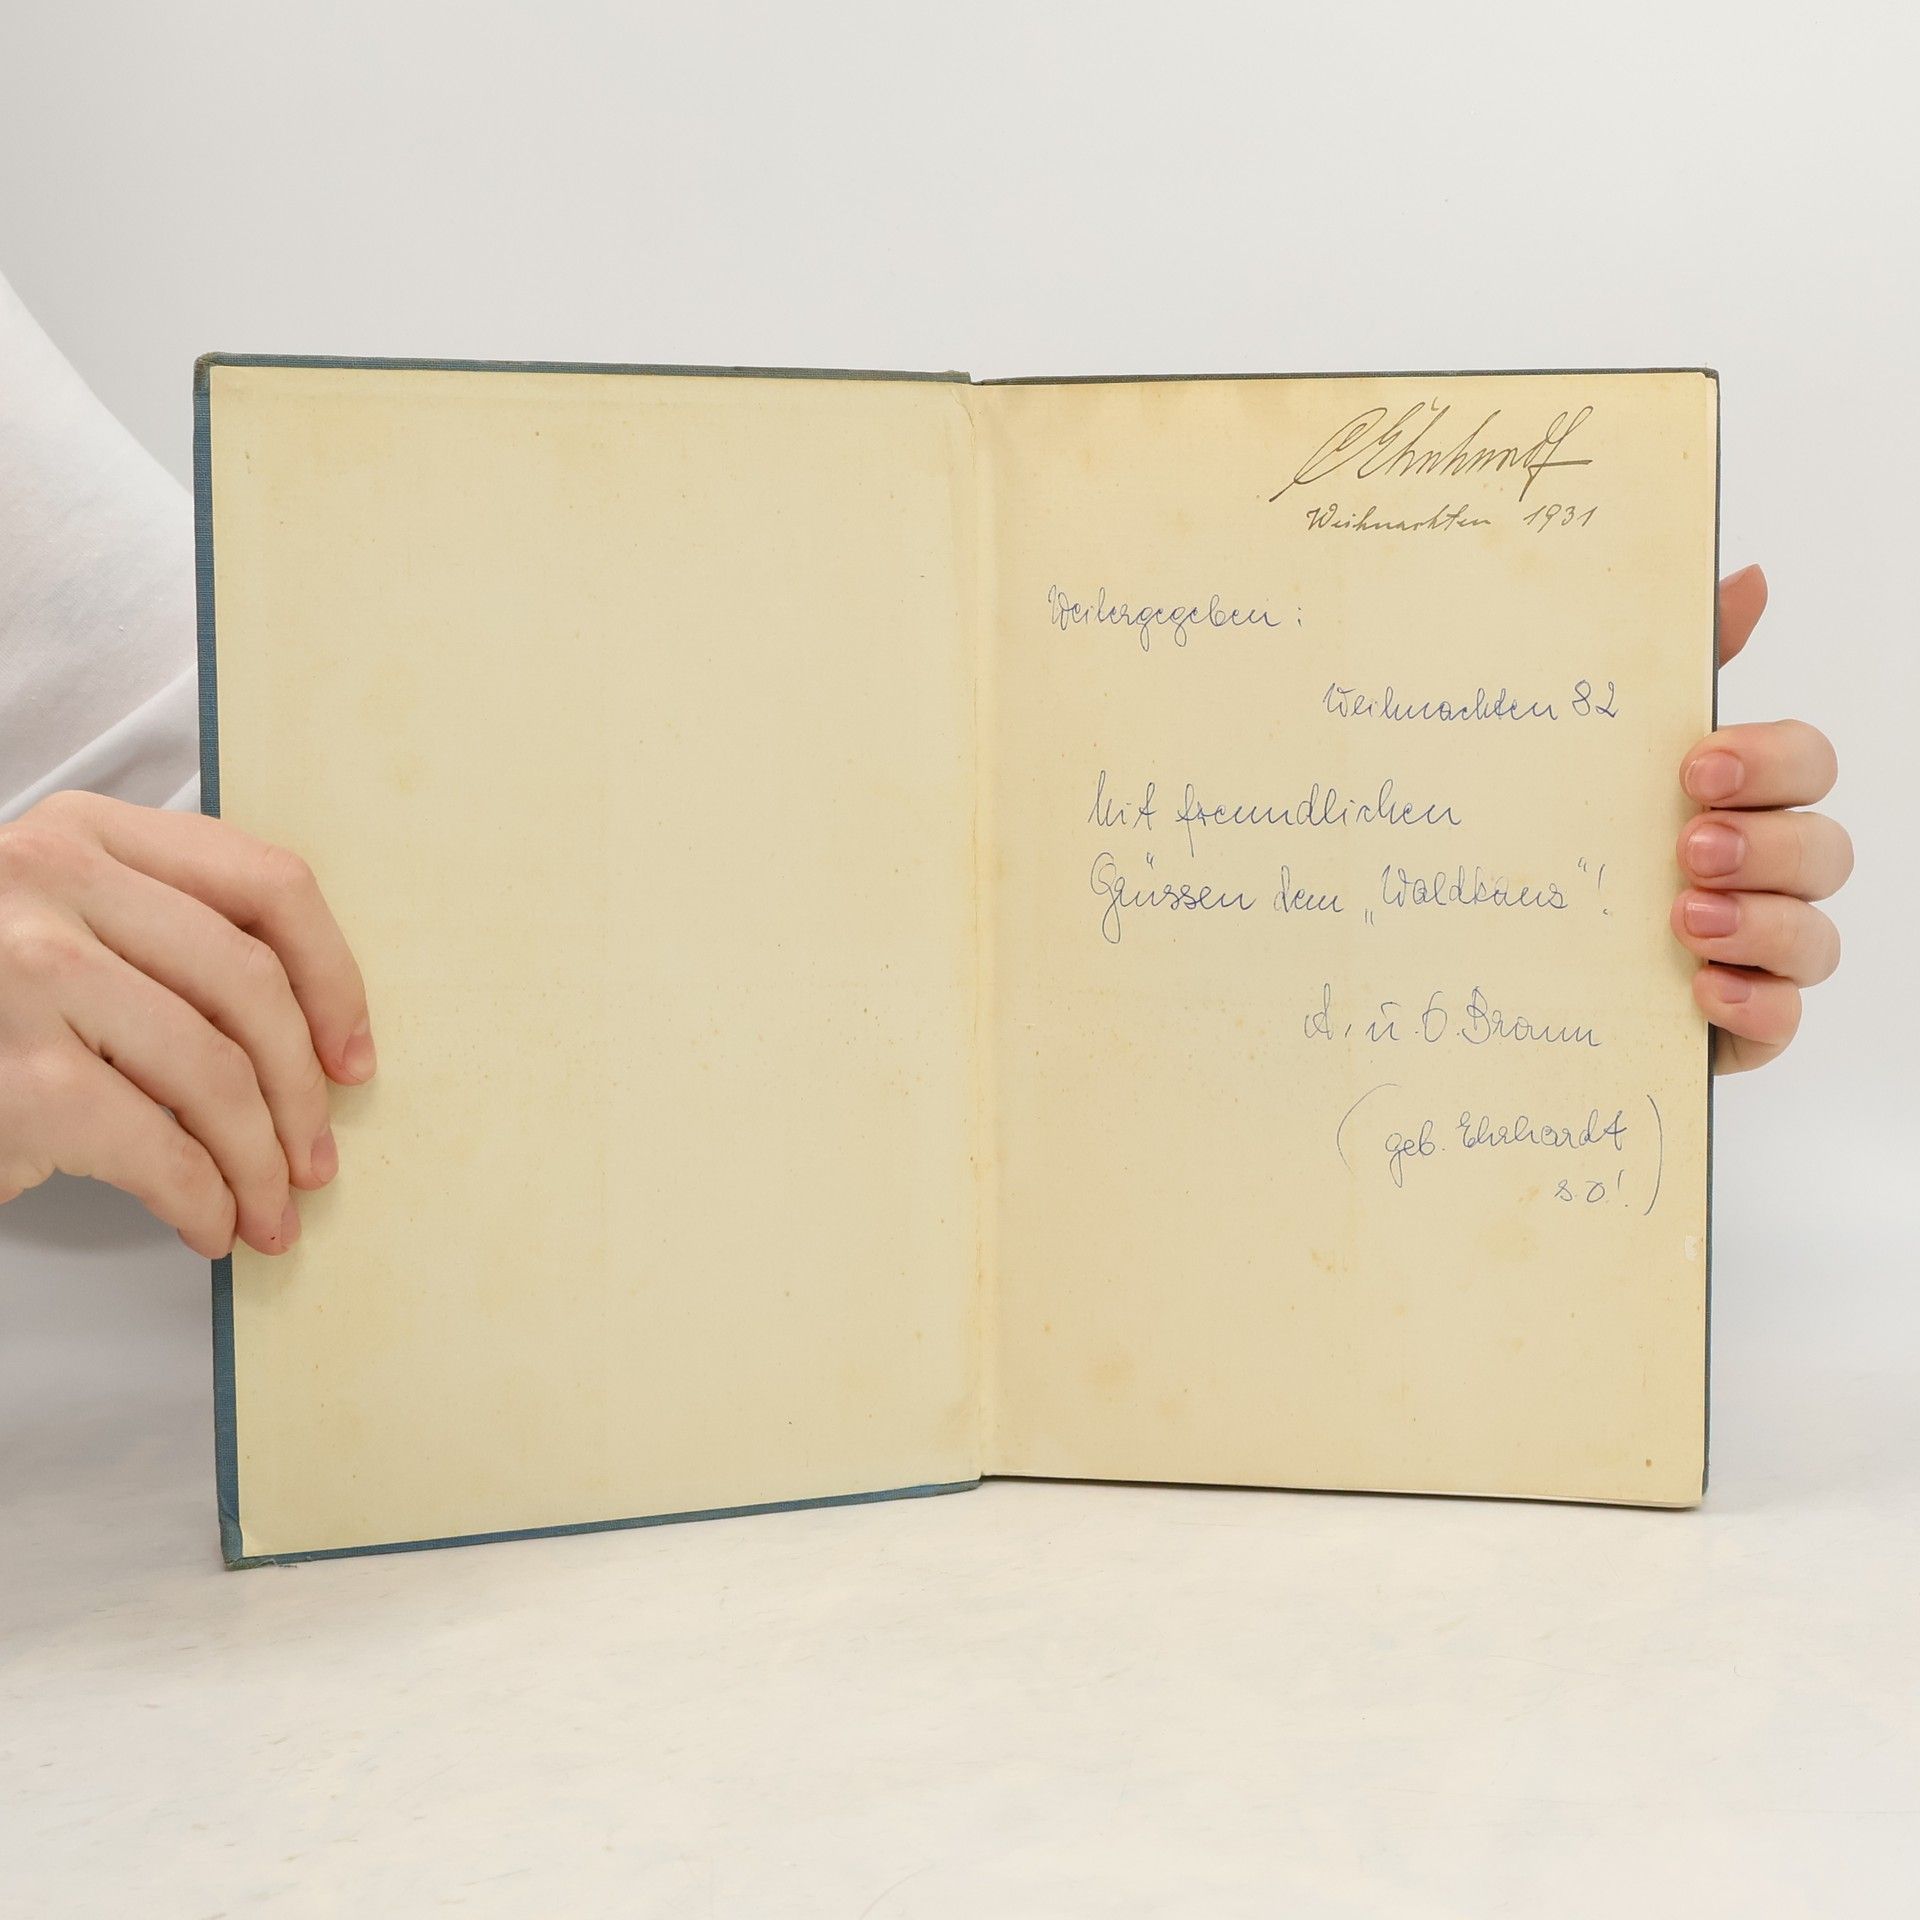 Ehrhardt
Weihnachten 1931
Weitergegeben:
Weihnachten 82
Mit freundlichen
Grüssen dem „Waldkauz“!
A. u. O. Braun
(geb. Ehrhardt
s.o!)